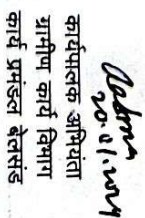 20.01.2024
कार्यपालक अभियंता
ग्रामीण कार्य विभाग
कार्य प्रमंडल बेलसंड